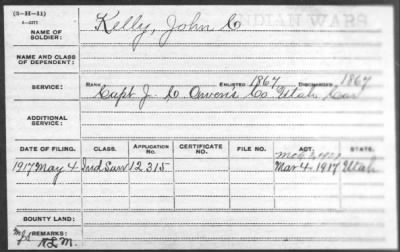 (3-H-11)
INDIAN WARS
NAME OF SOLDIER: Kelly, John C
NAME AND CLASS OF DEPENDENT:
SERVICE: RANK, ENLISTED 1867 DISCHARGED, 1867
Capt J. C Owen's Co Utah Cav
ADDITIONAL SERVICE:
DATE OF FILING. CLASS. APPLICATION No. CERTIFICATE NO. FILE NO. ACT. STATE.
1917 May 4 Ind Surv 12 315 Mar 4 1917 Utah
BOUNTY LAND:
REMARKS: